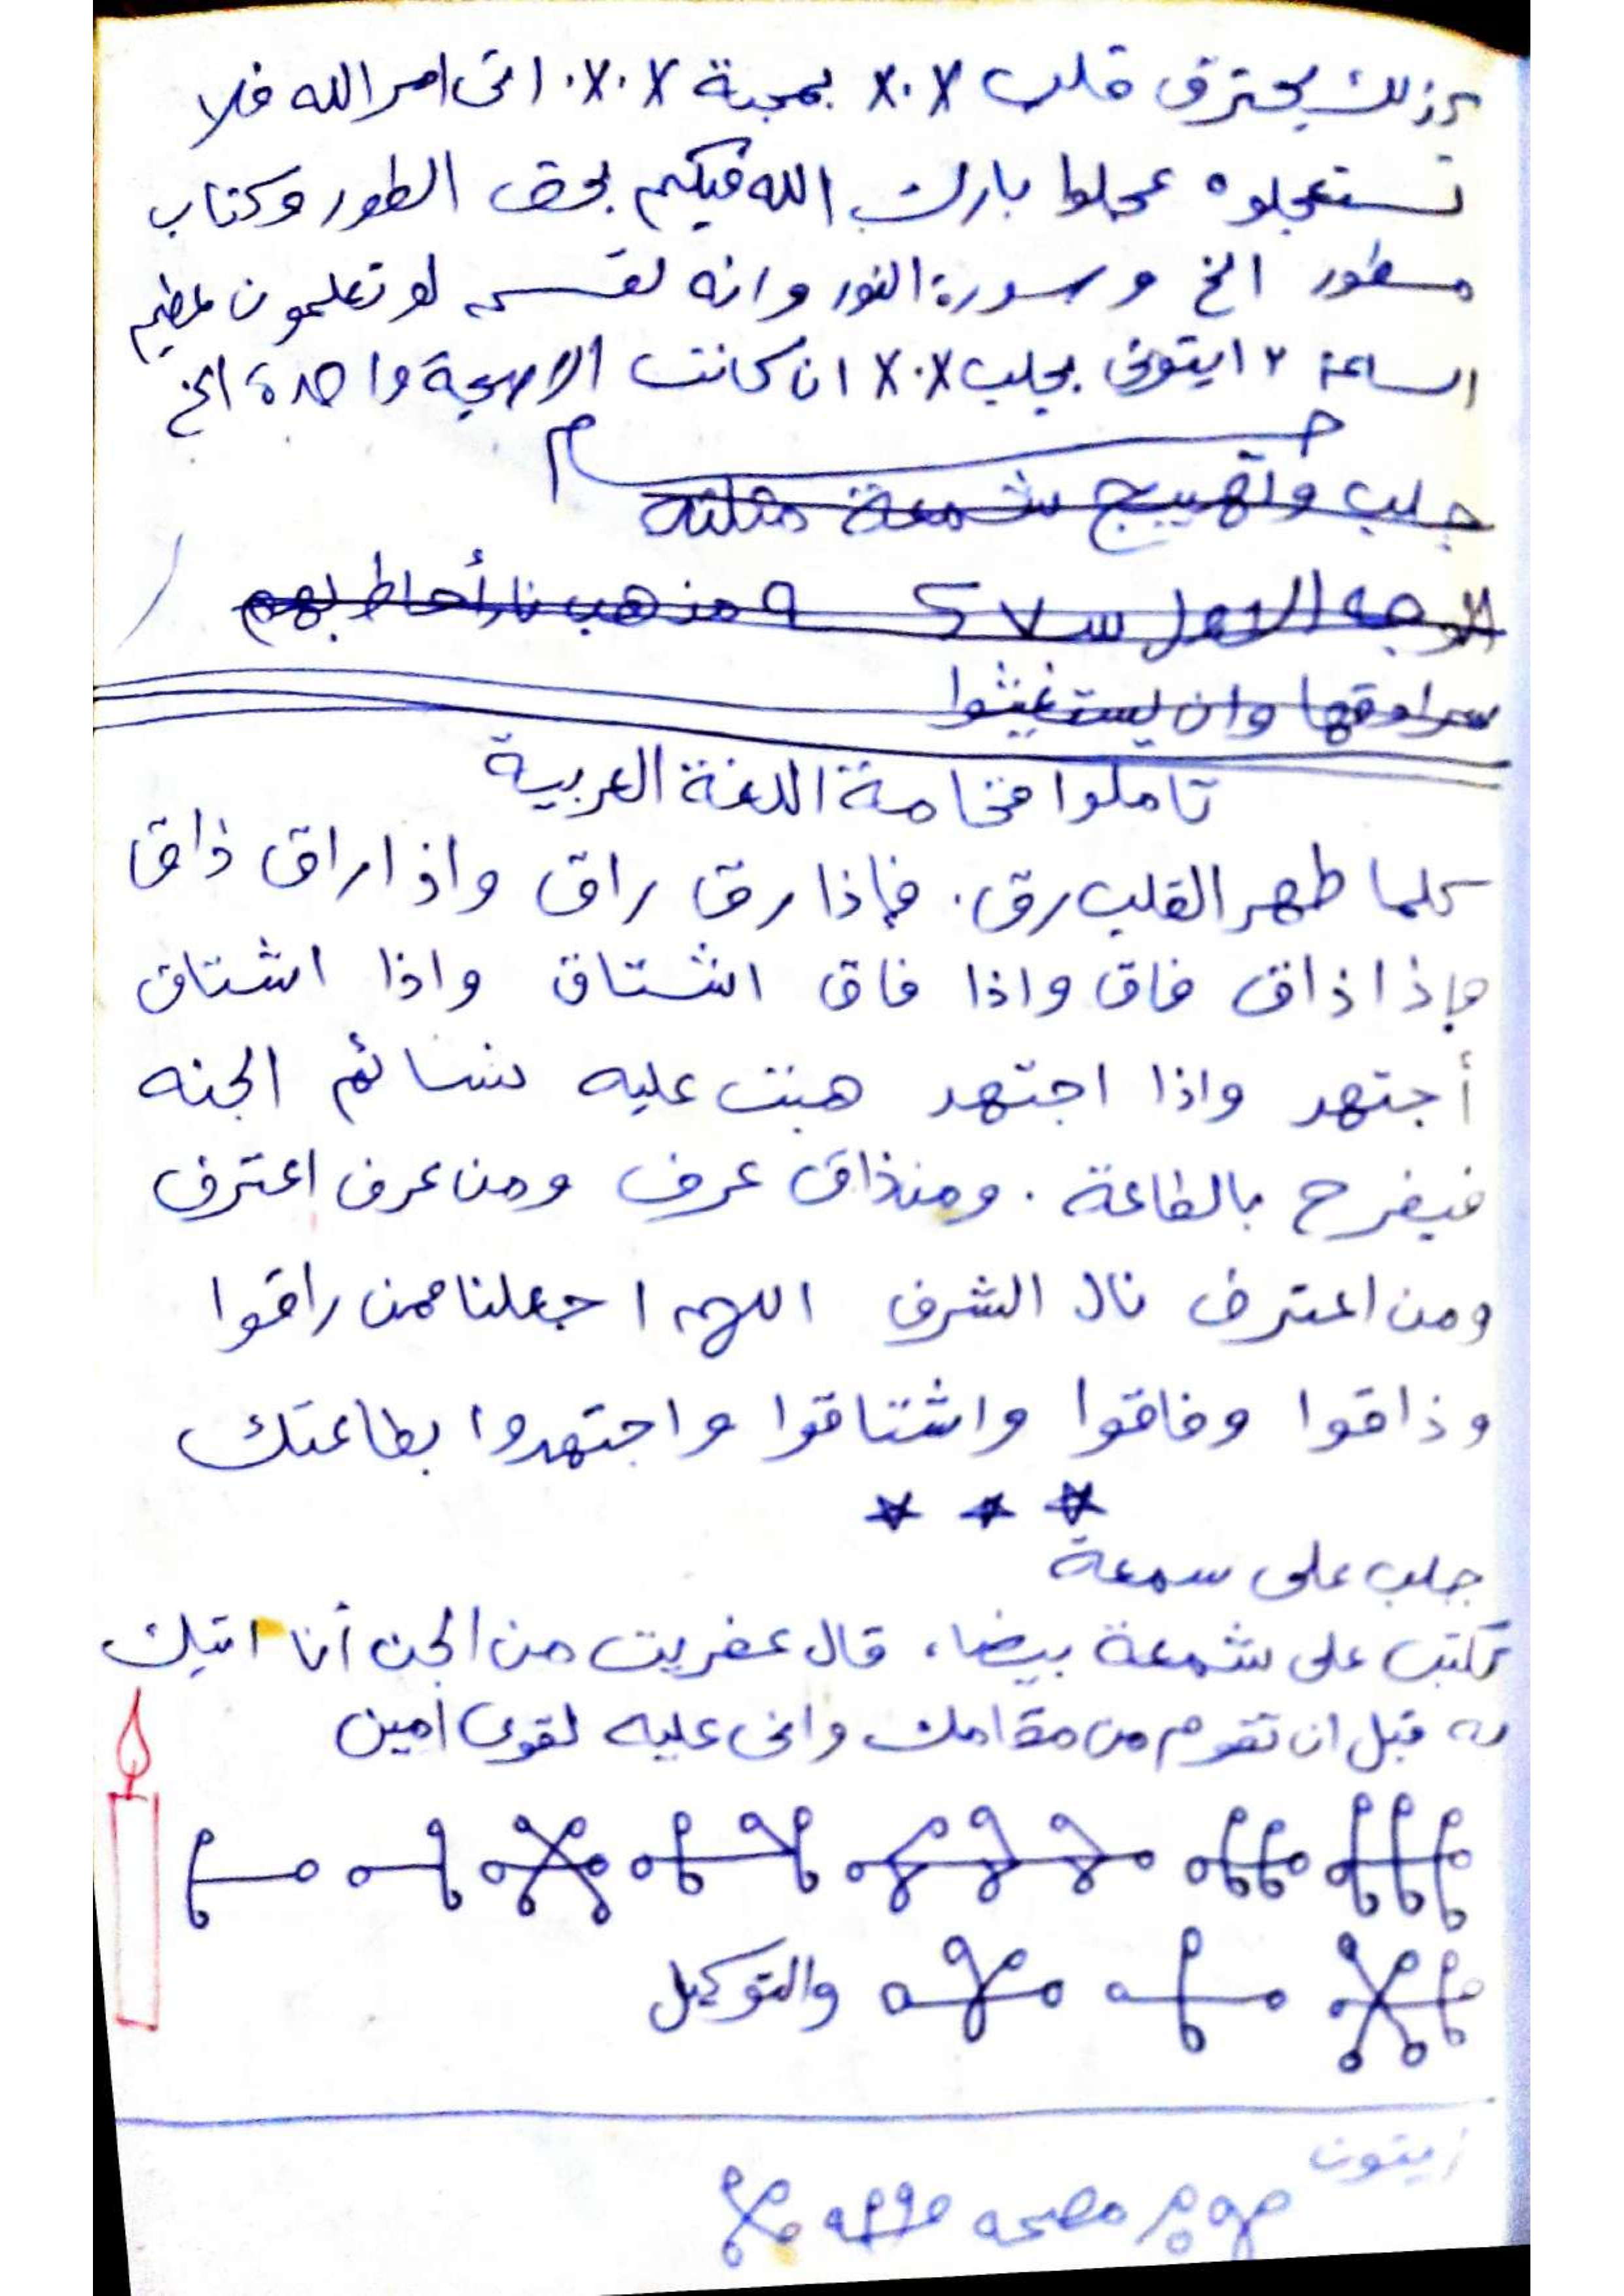 كذلك يحترق قلب X.X بمحبة X.X. اتى امر الله فلا
تستعجلوه عجلوا بارك الله فيكم بحق الطور وكتاب
مسطور الخ وسورة النور وانه لقسم لو تعلمون عظيم
الساعة ٢ ايتوني بجلب X.X ان كانت الا صيحة واحدة الخ
جلب وتهييج شمعة مثلثه
الوجه الاول س ٧ ٩ من هب نار أحاط بهم
سرادقها وان يستغيثوا
تاملوا فخامة اللغة العربية
كلما طهر القلب رق. فإذا رق راق واذا راق ذاق
وإذا ذاق فاق واذا فاق اشتاق واذا اشتاق
أجتهد واذا اجتهد هبت عليه نسائم الجنه
فيفرح بالطاعة. ومن ذاق عرف ومن عرف اعترف
ومن اعترف نال الشرف اللهم اجعلنا ممن راقوا
وذاقوا وفاقوا واشتاقوا واجتهدوا بطاعتك
جلب على سمعة
تكتب على شمعة بيضاء قال عفريت من الجن أنا اتيك
به قبل ان تقوم من مقامك واني عليه لقوي امين
والتوكيل
زيتون